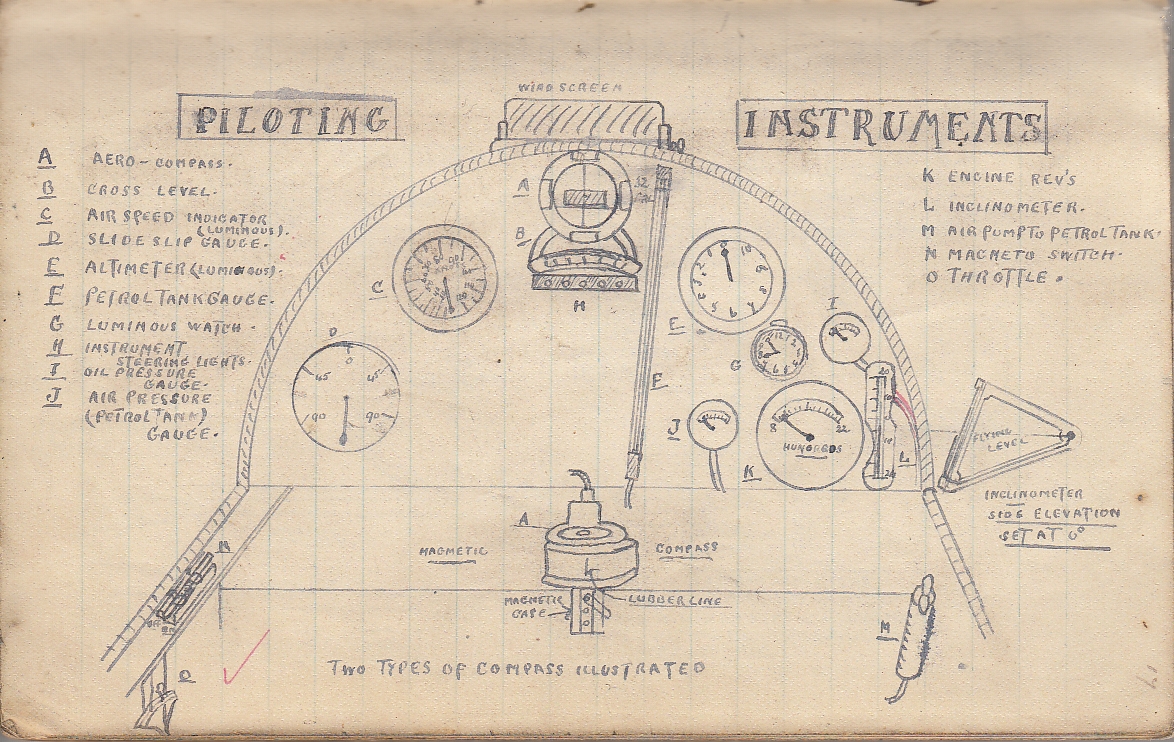 WINDSCREEN
PILOTING
INSTRUMENTS
A AERO-COMPASS.
B CROSS LEVEL.
C AIR SPEED INDICATOR
(LUMINOUS).
D SLIDE SLIP GAUGE.
E ALTIMETER (LUMINOUS).
F PETROL TANK GAUGE.
G LUMINOUS WATCH.
H INSTRUMENT
STEERING LIGHTS.
I OIL PRESSURE
GAUGE.
J AIR PRESSURE
(PETROL TANK)
GAUGE.
K ENGINE REV'S
L INCLINOMETER.
M AIR PUMP TO PETROL TANK.
N MAGNETO SWITCH.
O THROTTLE.
A
B
C
H
D
0
45 45
90 90
E
F
G
I
J
K
8 22
HUNDREDS
L
20
20
FLYING
LEVEL
INCLINOMETER
SIDE ELEVATION
SET AT 0°
A
MAGNETIC COMPASS
MAGNETIC
CASE
LUBBER LINE
M
O
TWO TYPES OF COMPASS ILLUSTRATED
17